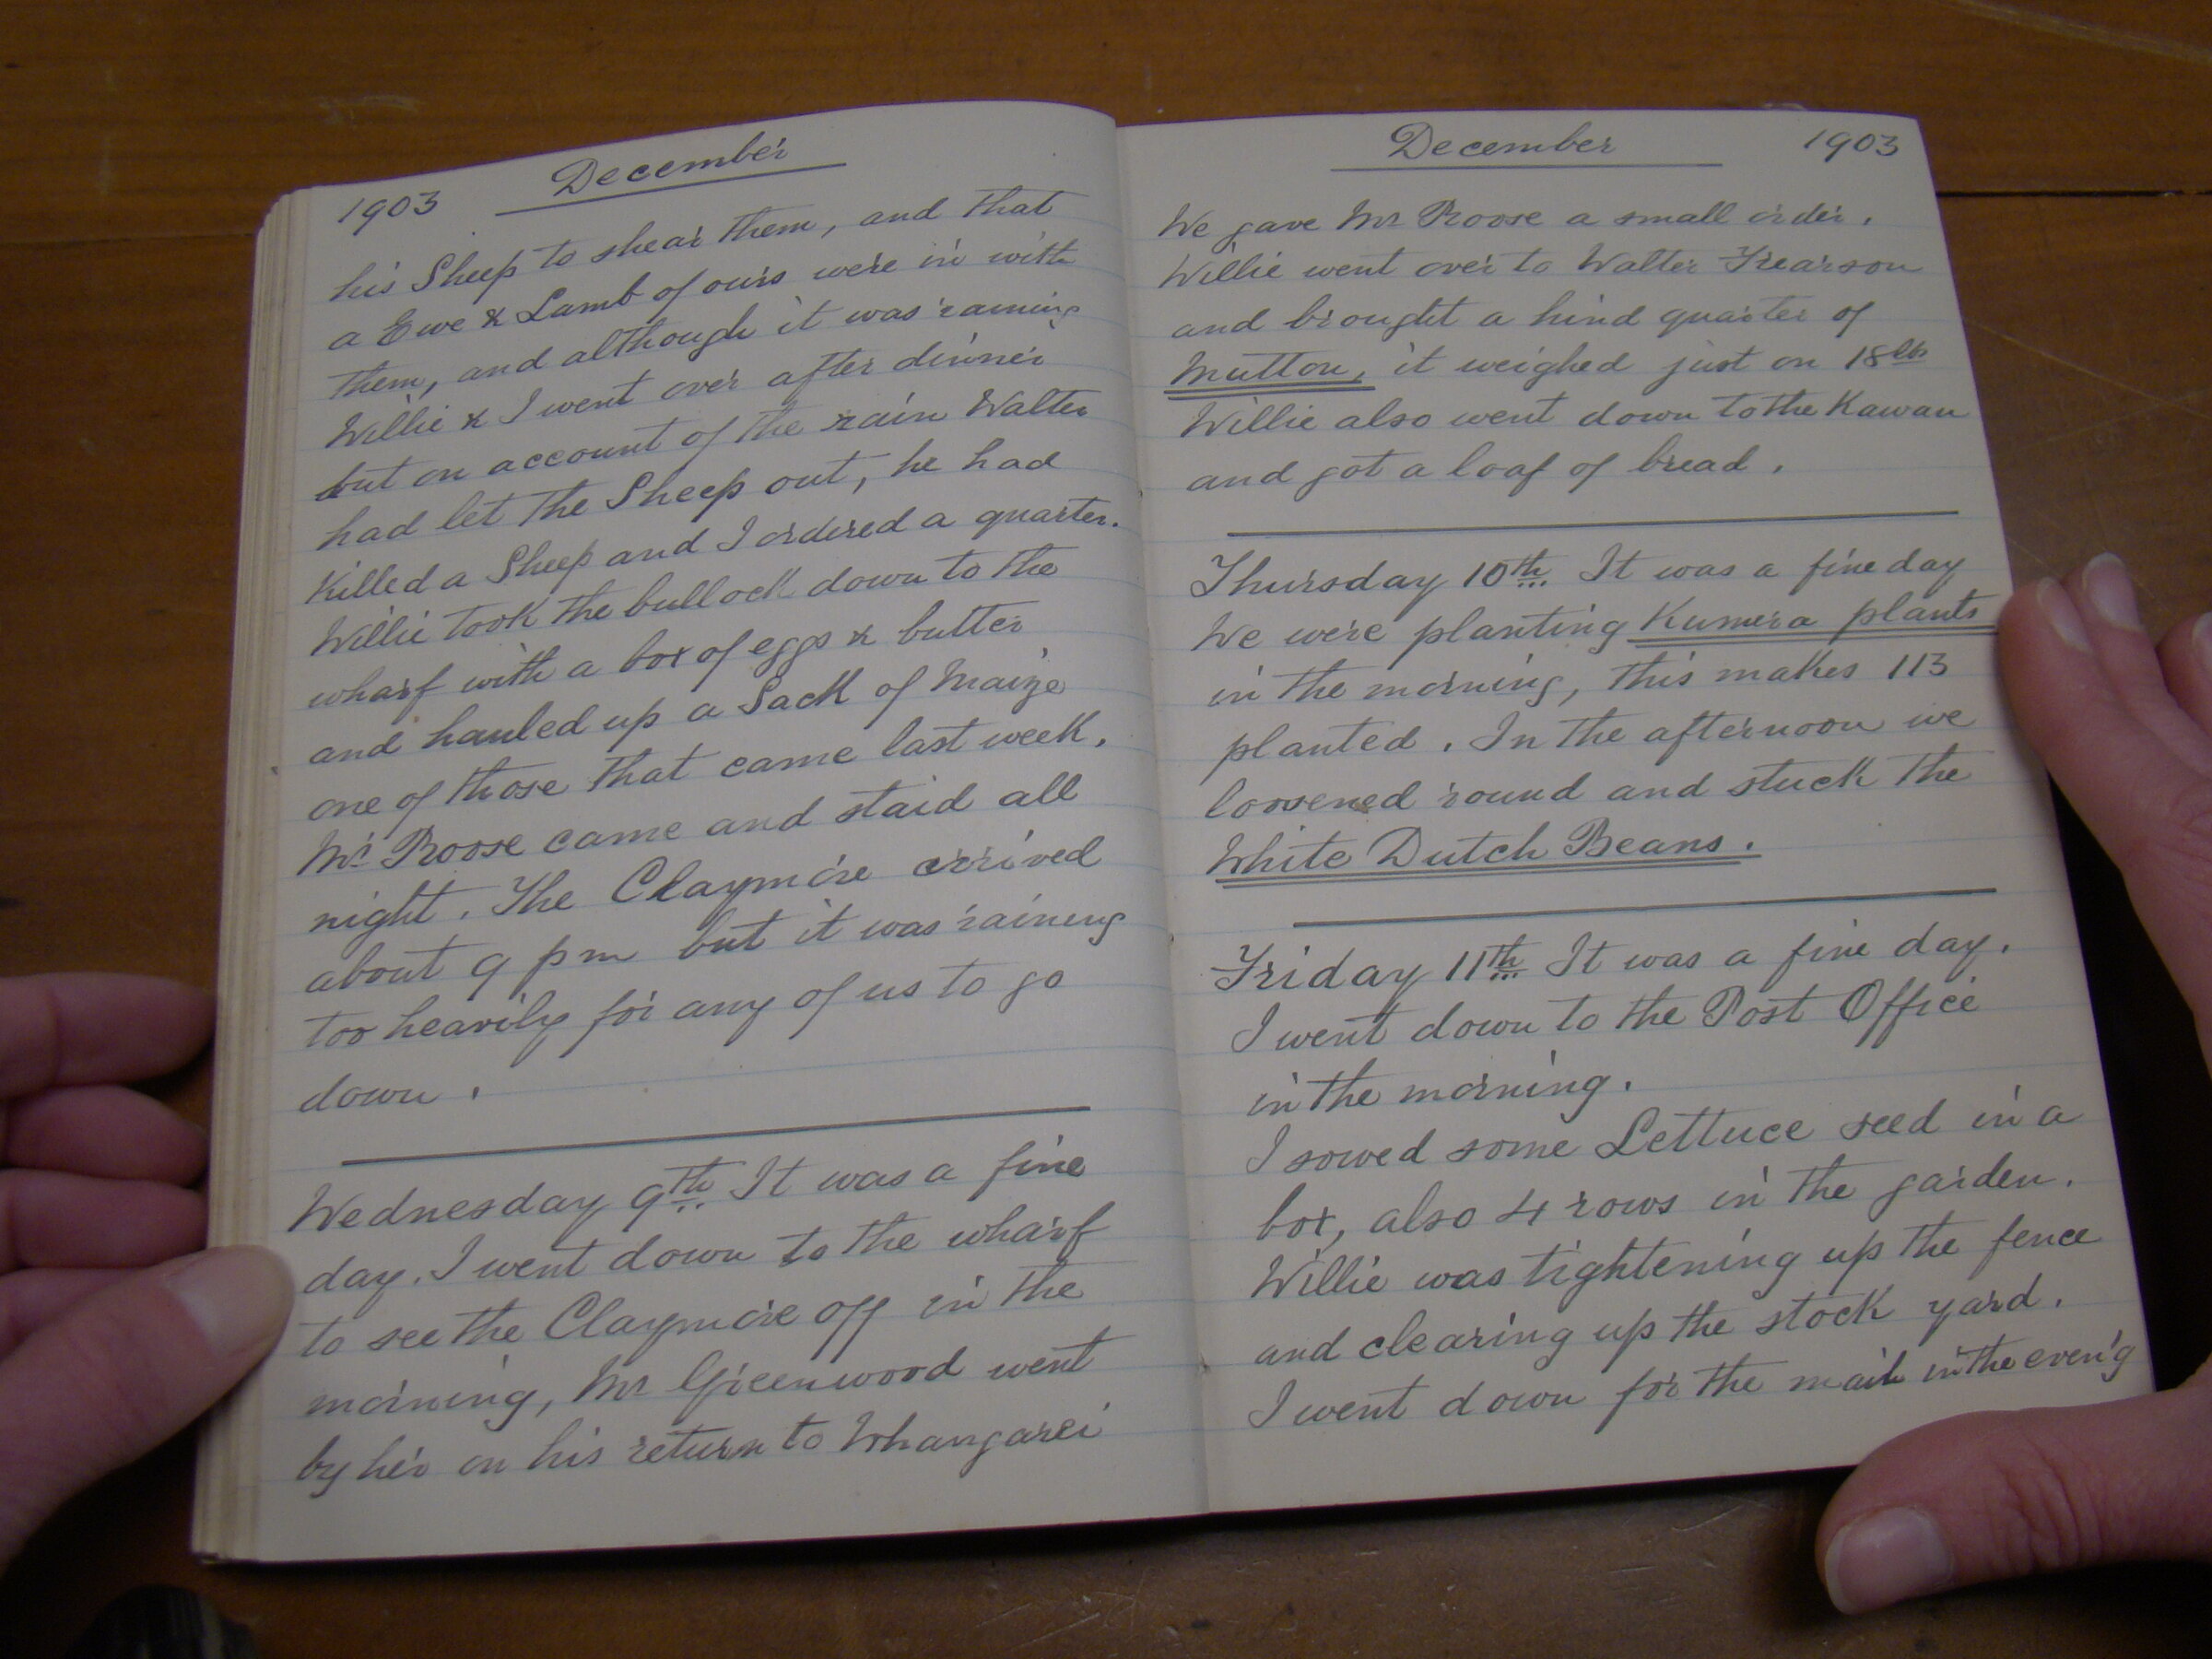 1903 December
his Sheep to shear them, and that
a Ewe & Lamb of ours were in with
them, and although it was raining
Willie & I went over after dinner
but on account of the rain Walter
had let the Sheep out, he had
Killed a Sheep and I ordered a quarter.
Willie took the bullock down to the
wharf with a box of eggs & butter
and hauled up a Sack of Maize
one of those that came last week.
Mr Roose came and staid all
night. The Claymore arrived
about 9 pm but it was raining
too heavily for any of us to go
down.
Wednesday 9th It was a fine
day. I went down to the wharf
to see the Claymore off in the
morning, Mr Greenwood went
by her on his return to Whangarei
December 1903
We gave Mr Roose a small order.
Willie went over to Walter Frearson
and brought a hind quarter of
Mutton, it weighed just on 18lbs
Willie also went down to the Kawau
and got a loaf of bread.
Thursday 10th It was a fine day
We were planting Kumera plants
in the morning, this makes 113
planted. In the afternoon we
loosened round and stuck the
White Dutch Beans.
Friday 11th It was a fine day.
I went down to the Post Office
in the morning.
I sowed some Lettuce seed in a
box, also 4 rows in the garden.
Willie was tightening up the fence
and clearing up the stock yard.
I went down for the mail in the even'g